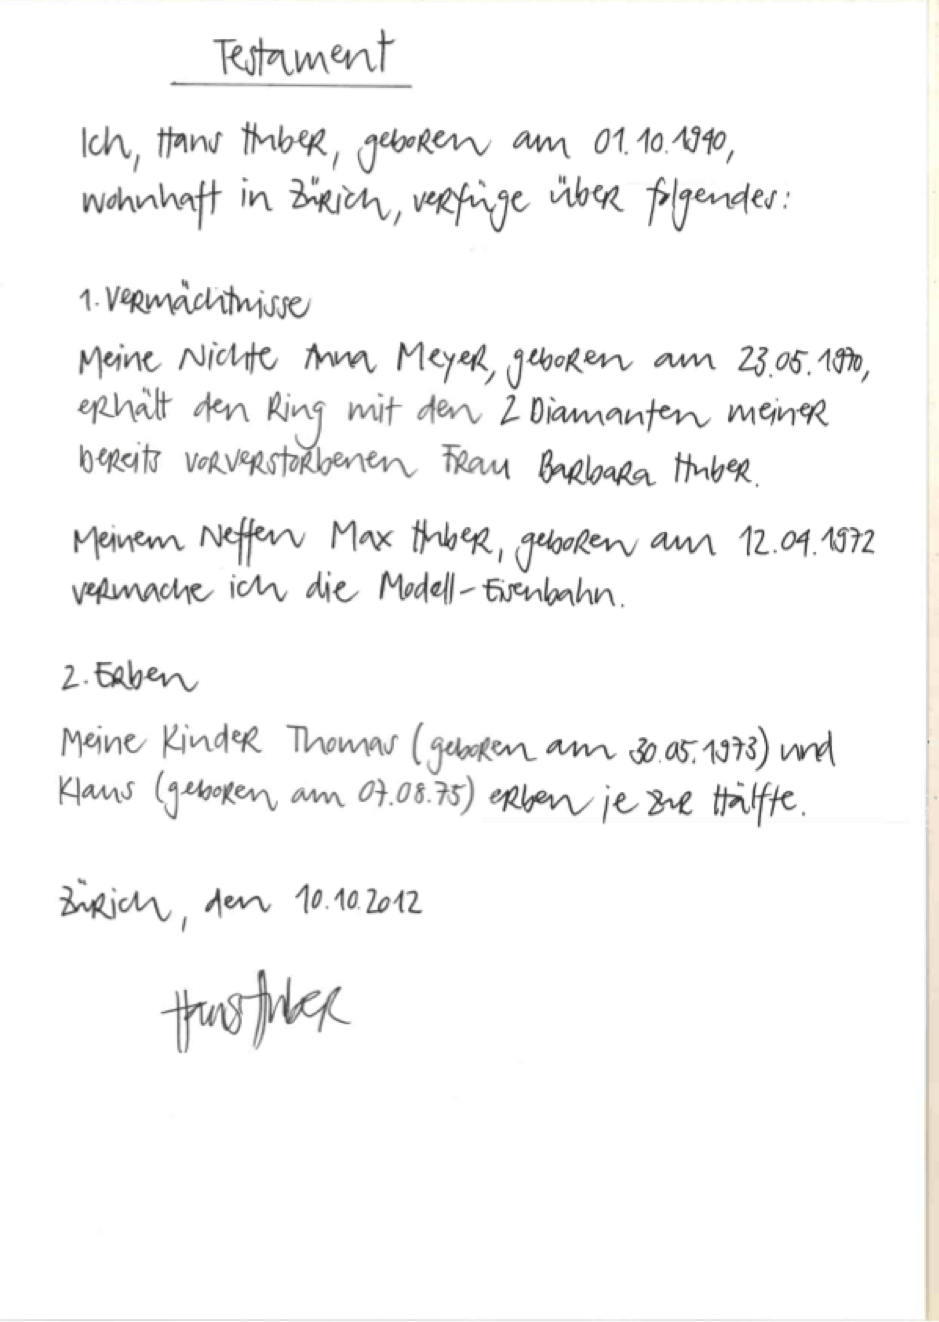 Testament
Ich, Hans Huber, geboren am 01.10.1940,
wohnhaft in Zürich, verfüge über folgendes:
1. Vermächtnisse
Meine Nichte Anna Meyer, geboren am 23.05.1970,
erhält den Ring mit den 2 Diamanten meiner
bereits vorverstorbenen Frau Barbara Huber.
Meinem Neffen Max Huber, geboren am 12.04.1972
vermache ich die Modell-Eisenbahn.
2. Erben
Meine Kinder Thomas (geboren am 30.05.1973) und
Klaus (geboren am 07.08.75) erben je zur Hälfte.
Zürich, den 10.10.2012
Hans Huber